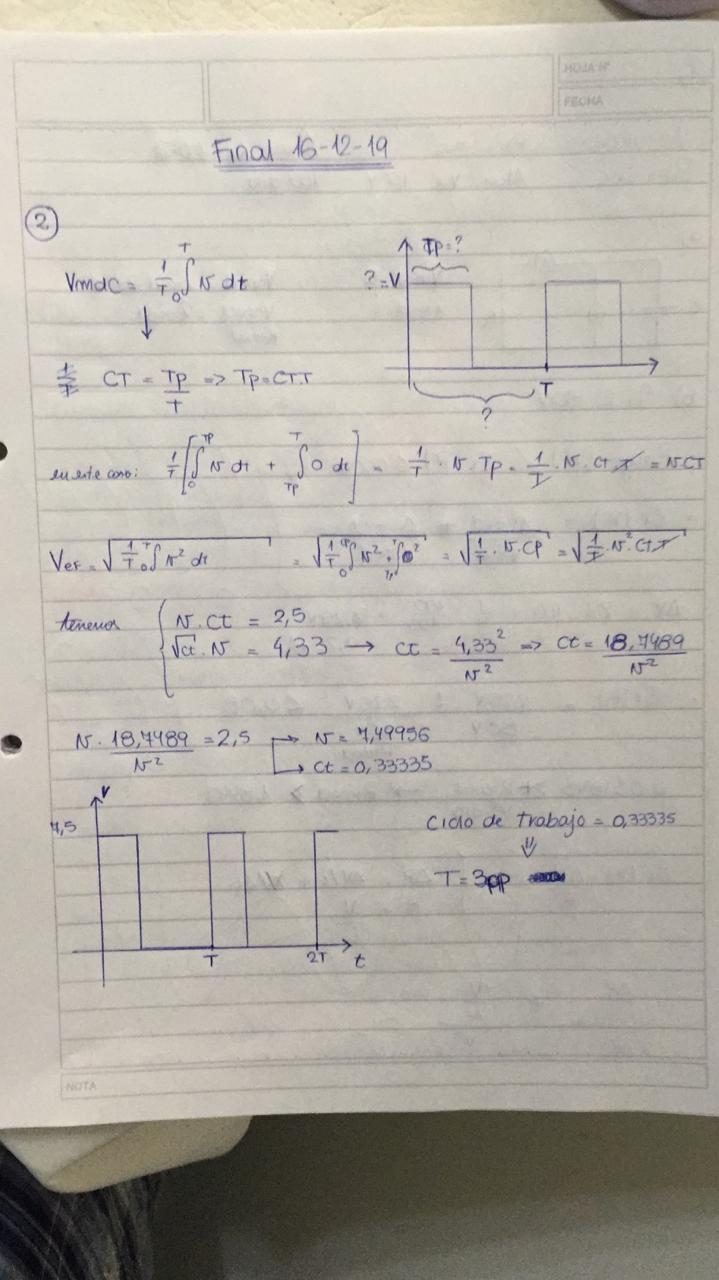 HOJA N°
FECHA
Final 16-12-19
2
Vmdc = 1/T ∫₀ᵀ v dt
Tp=?
?=V
T
?
CT = Tp/T => Tp=CT.T
en este caso: 1/T [∫₀ᵀᵖ v dt + ∫ₜₚᵀ 0 dt] = 1/T . v . Tp = 1/T . v . CT . T = v.CT
Vef = √(1/T ∫₀ᵀ v² dt) = √(1/T ∫₀ v² . ∫ 0²) = √(1/T . v . Cp) = √(1/T . v² . CT.T)
tenemos
v . Ct = 2,5
√ct . v = 4,33 → ct = 4,33²/v² => ct = 18,7489/v²
v . 18,7489/v² = 2,5 → v = 7,49956
→ Ct = 0,33335
v
7,5
T
2T
t
Ciclo de trabajo = 0,33335
⇓
T = 3pp
NOTA